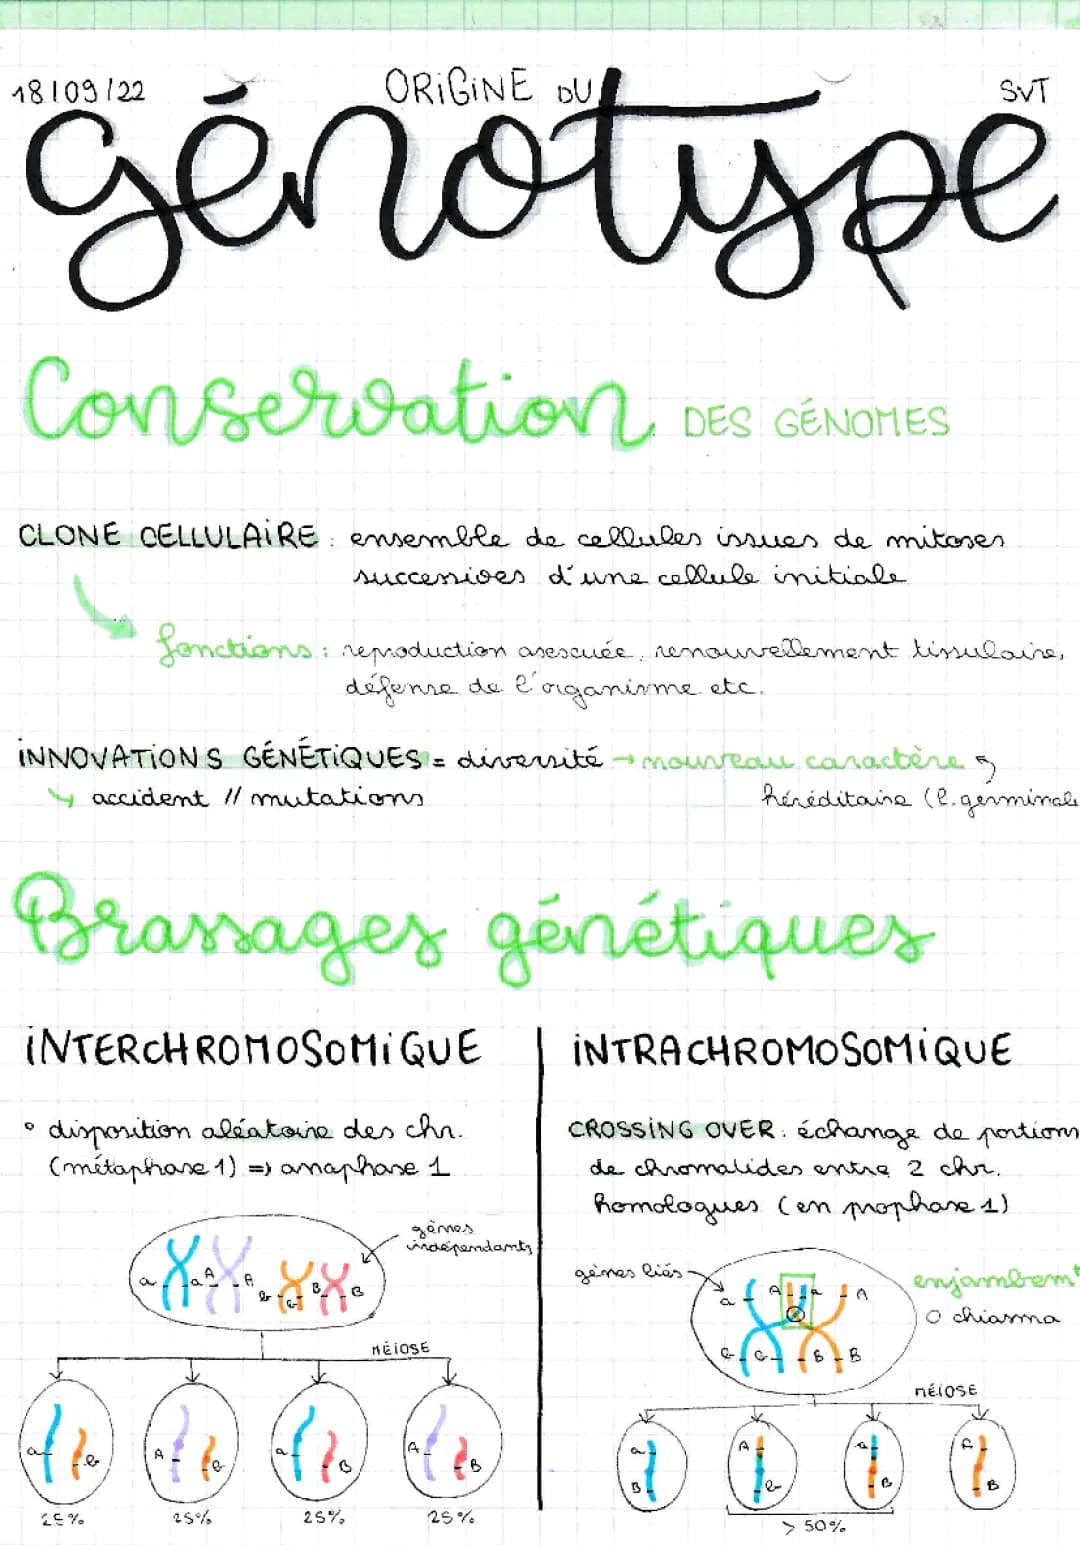 18/09/22 ORiGiNE DU SVT
génotype
Conservation DES GÉNOMES
CLONE CELLULAiRE : ensemble de cellules issues de mitoses
successives d'une cellule initiale
fonctions : reproduction asexuée, renouvellement tissulaire,
défense de l'organisme etc.
iNNOVATiONS GÉNÉTiQUES = diversité → nouveau caractère
↳ accident // mutations héréditaire (l. germinale
Brassages génétiques
iNTERCHROMOSOMiQUE iNTRACHROMOSOMiQUE
° disposition aléatoire des chr.
(métaphase 1) => anaphase 1
CROSSiNG OVER : échange de portions
de chromatides entre 2 chr.
homologues (en prophase 1)
gènes
indépendants
a a A A b b B B
MÉiOSE
a b A b a B A B
25% 25% 25% 25%
gènes liés
enjambemt
O chiasma
a A a A
b b B B
MÉiOSE
a A a A
B b B B
> 50%